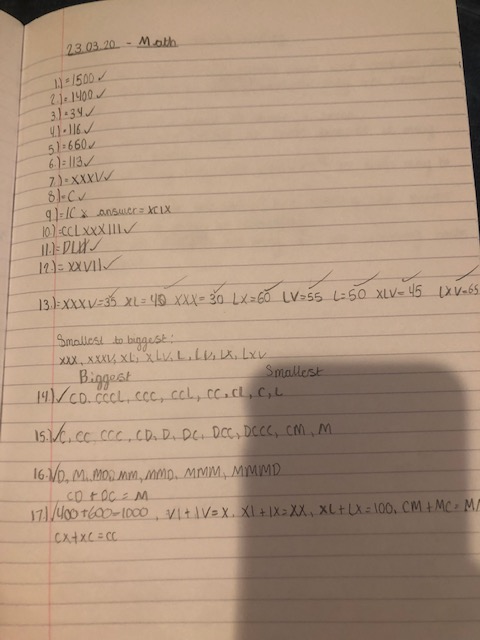 23.03.20 - Math
1.) = 1500 ✓
2.) = 1400 ✓
3.) = 34 ✓
4.) = 116 ✓
5.) = 660 ✓
6.) = 113 ✓
7.) = XXXV ✓
8.) = C ✓
9.) = IC x answer = XCIX
10.) = CCLXXXIII ✓
11.) =
12.) = XXVII ✓
13.) = XXXV = 35 XL = 40 XXX = 30 LX = 60 LV = 55 L = 50 XLV = 45 LXV = 65
Smallest to biggest:
XXX, XXXV, XL, XLV, L, LV, LX, LXV
Biggest Smallest
14.) ✓ CD, CCCL, CCC, CCL, CC, CL, C, L
15.) ✓ C, CC, CCC, CD, D, DC, DCC, DCCC, CM, M
16.) ✓ D, M, MD, MM, MMD, MMM, MMMD
CD + DC = M
17.) ✓ 400 + 600 = 1000, VI + IV = X, XI + IX = XX, XL + LX = 100, CM + MC =
CX + XC = CC